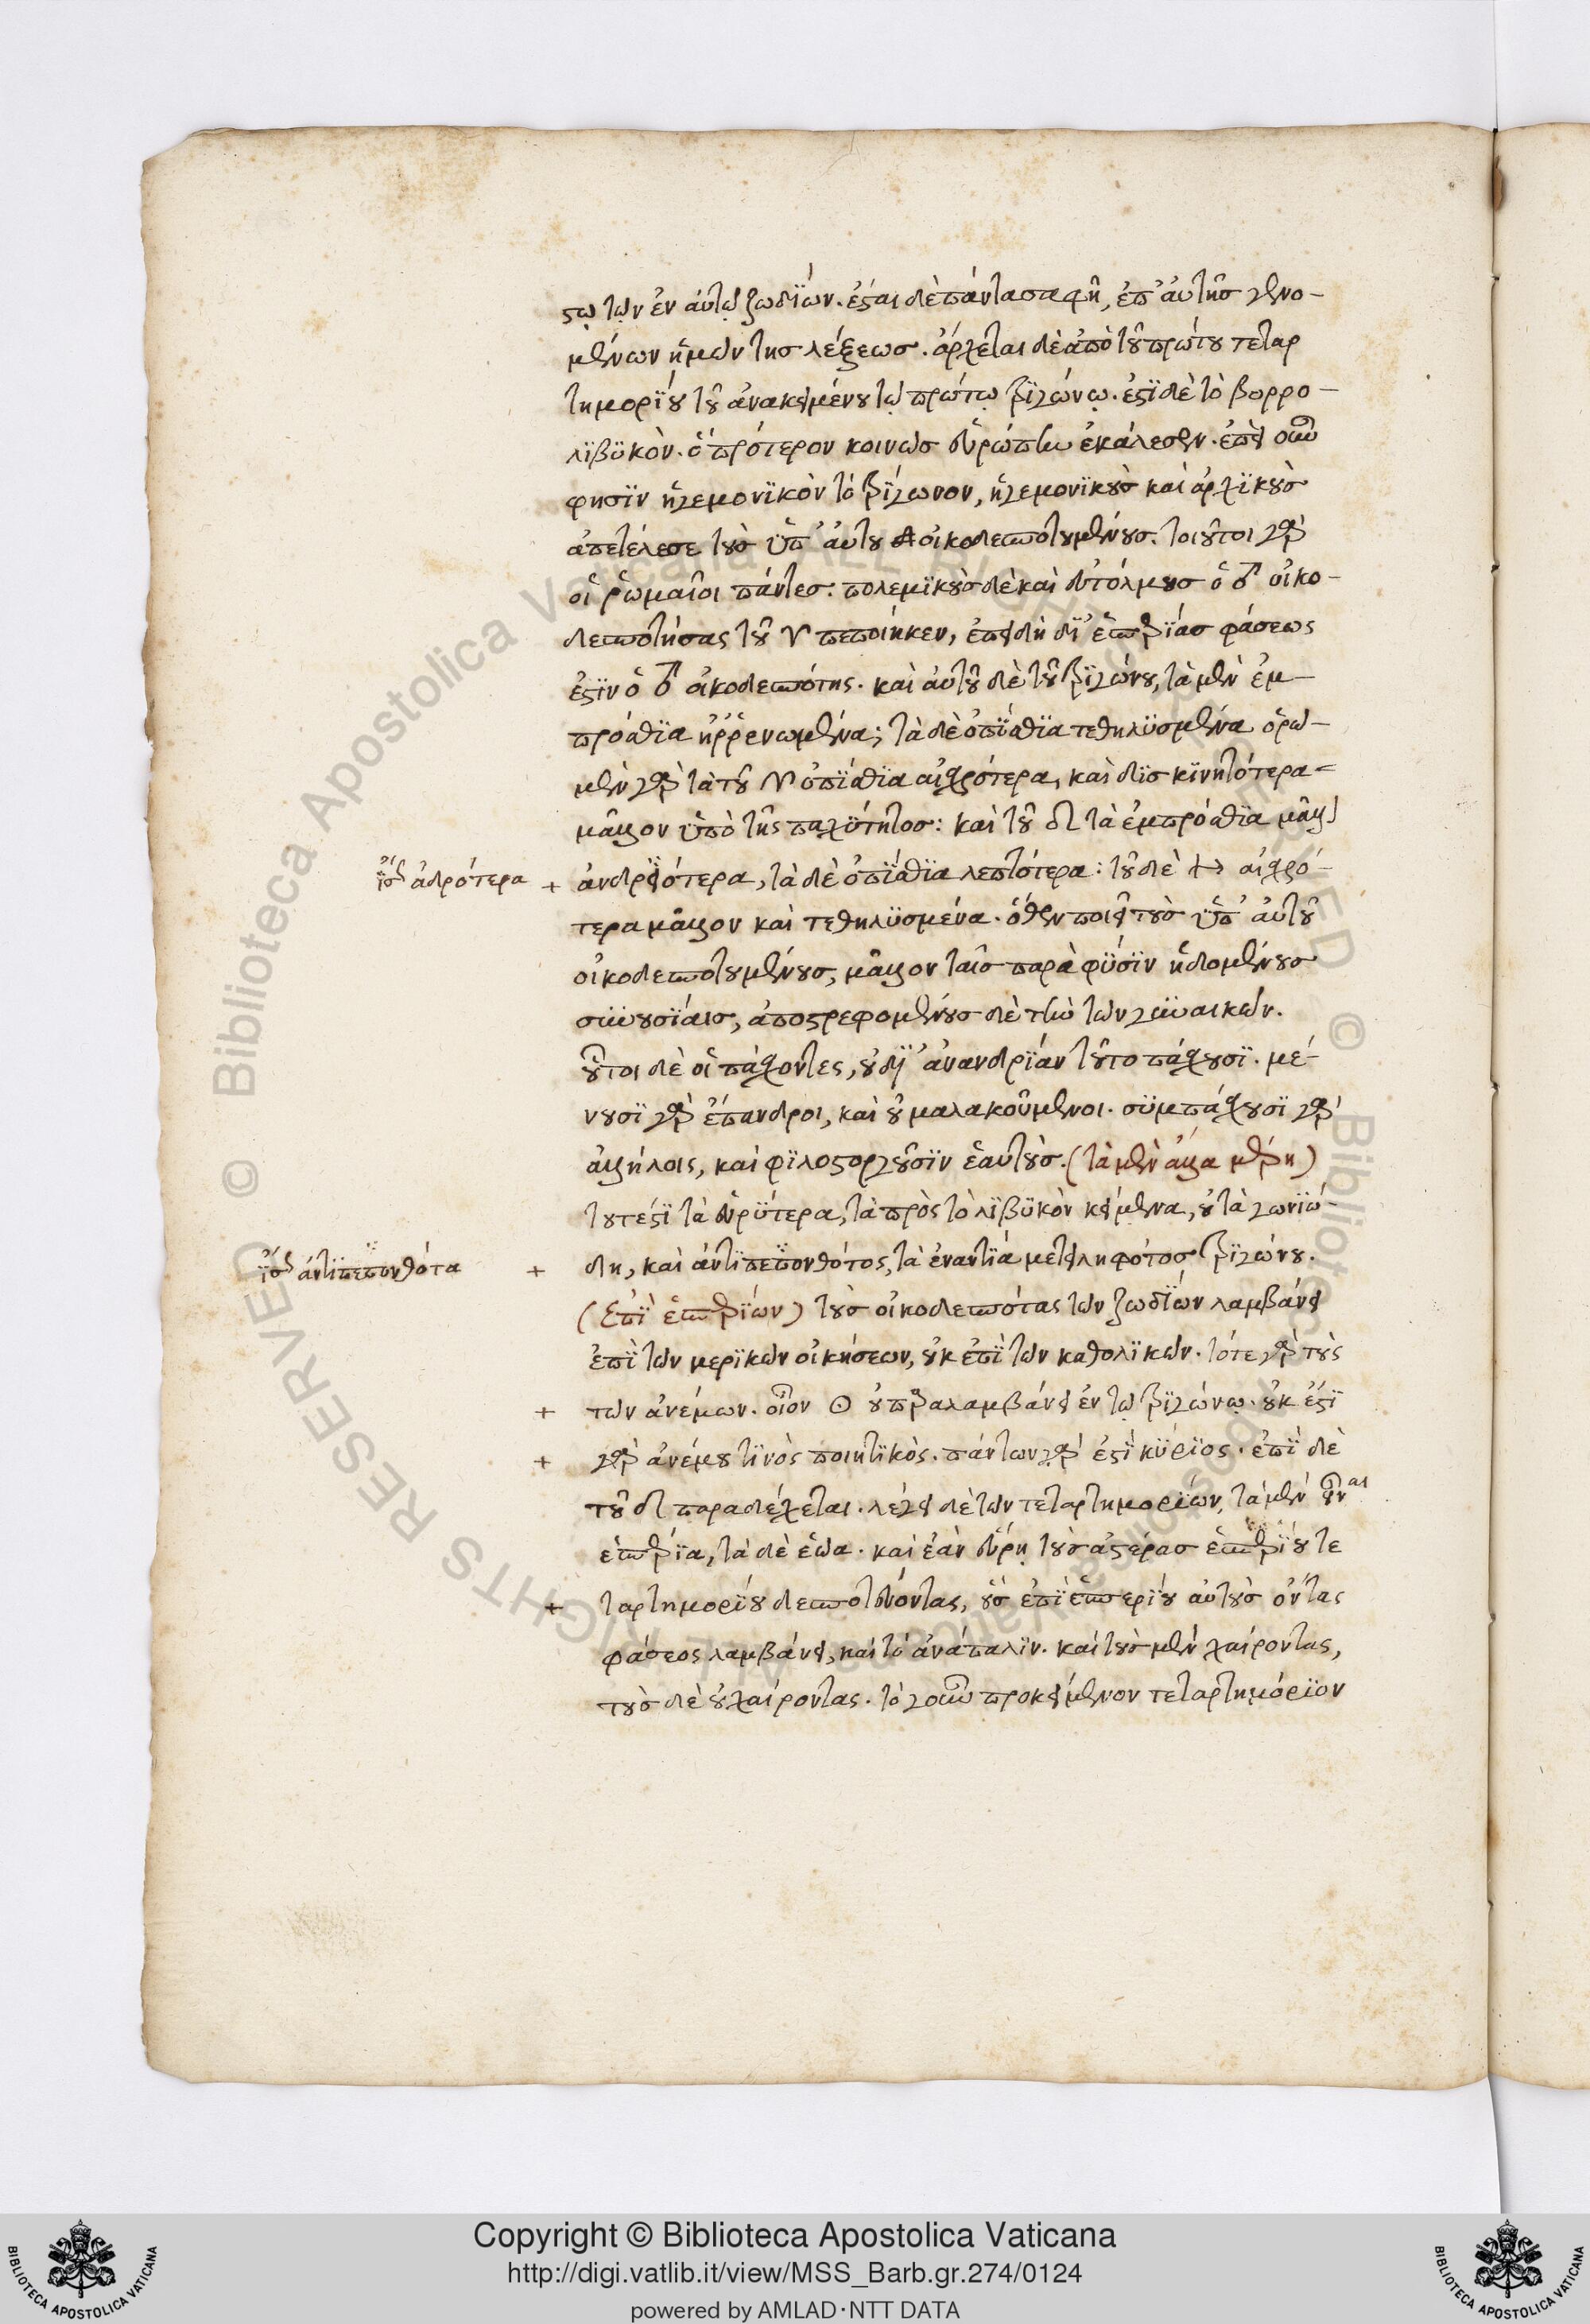 στῳ τῶν ἐν αὐτῷ ζωδΐων. ἔσται δὲ πάντα σαφῆ, ἐπ' αὐτῆς γενο-
μένων ἡμῶν τῆς λέξεως. ἄρχεται δὲ ἀπὸ τοῦ πρώτου τεταρ
τημορΐου τοῦ ἀνακειμένου τῷ πρώτῳ τριγώνῳ. ἐστὶ δὲ τὸ βορρο-
λϊβυκὸν. ὃ πρότερον κοινῶς εὐρώπην ἐκάλεσεν. ἐπεὶ οὖν
φησὶν ἡγεμονϊκὸν τὸ τρΐγωνον, ἡγεμονϊκοὺς καὶ ἀρχϊκοὺς
ἀπετέλεσε τοὺς ὑπ' αὐτοῦ οἰκοδεσποτουμένους. τοιοῦτοι γὰρ
οἱ ῥωμαῖοι πάντες: πολεμϊκοὺς δὲ καὶ εὐτόλμους ὁ ♂ οἰκο-
δεσποτήσας τοῦ ♈ πεποίηκεν, ἐπειδὴ δι' ἑσπερΐας φάσεως
ἐστὶν ὁ ♂ οἰκοδεσπότης. καὶ αὐτοῦ δὲ τοῦ τριγώνου, τὰ μὲν ἐμ-
πρόσθϊα ἠρρενωμένα; τὰ δὲ ὀπΐσθϊα τεθηλϋσμένα ὁρῶ-
μεν γὰρ τὰ τοῦ ♈ ὀπΐσθϊα αἰσχρότερα, καὶ δϋσκϊνητότερα
μᾶλλον ὑπὸ τῆς παχύτητος: καὶ τοῦ ♌ τὰ ἐμπρόσθϊα μᾶλλ
ἴσως ἁδρότερα + ἀνδρειότερα, τὰ δὲ ὀπΐσθϊα λεπτότερα: τοῦ δὲ ♐ αἰσχρό-
τερα μᾶλλον καὶ τεθηλϋσμένα. ὅθεν ποιεῖ τοὺς ὑπ' αὐτοῦ
οἰκοδεσποτουμένους, μᾶλλον ταῖς παρὰ φύσϊν ἡδομένους
συνουσΐαις, ἀποστρεφομένους δὲ τὴν τῶν γυναικῶν.
οὗτοι δὲ οἱ πάσχοντες, οὐ δι' ἀνανδρΐαν τοῦτο πάσχουσϊ. μέ-
νουσϊ γὰρ ἔπανδροι, καὶ οὐ μαλακούμενοι. συμπάσχουσϊ γὰρ
ἀλλήλοις, καὶ φϊλοστοργοῦσϊν ἑαυτοὺς. (τὰ μὲν ἄλλα μέρη)
τουτέστϊ τὰ εὐρύτερα, τὰ πρὸς τὸ λϊβϋκὸν κείμενα, οὐ τὰ γωνϊώ-
ἴσως ἀντιπεπονθότα + δη, καὶ ἀντϊπεπονθότος, τὰ ἐναντία μετειληφότος τριγώνου.
(ἐπὶ ἑσπερΐων) τοὺς οἰκοδεσπότας τῶν ζωδΐων λαμβάνει
ἐπὶ τῶν μερϊκῶν οἰκήσεων, οὐκ ἐπὶ τῶν καθολϊκῶν. τότε γὰρ τοὺς
+ τῶν ἀνέμων. οἷον ☉ οὐ παραλαμβάνει ἐν τῷ τρϊγώνῳ. οὐκ ἔστϊ
+ γὰρ ἀνέμου τϊνὸς ποιητϊκὸς. πάντων γὰρ ἐστὶ κύρϊος. ἐπὶ δὲ
τοῦ ♌ παραδέχεται. λέγει δὲ τῶν τεταρτημορΐων, τὰ μὲν εἶναι
ἑσπέρϊα, τὰ δὲ ἑῷα. καὶ ἐὰν εὕρῃ τοὺς ἀστέρας ἑσπερΐου τε
+ ταρτημορΐου δεσποτεύοντας, ὡς ἐπὶ ἑσπερΐου αὐτοὺς ὄντας
φάσεος λαμβάνει, καὶ τὸ ἀνάπαλϊν. καὶ τοὺς μὲν χαίροντας,
τοὺς δὲ οὐ χαίροντας. τὸ γοῦν προκείμενον τεταρτημόρϊον
Copyright © Biblioteca Apostolica Vaticana
http://digi.vatlib.it/view/MSS_Barb.gr.274/0124
powered by AMLAD·NTT DATA